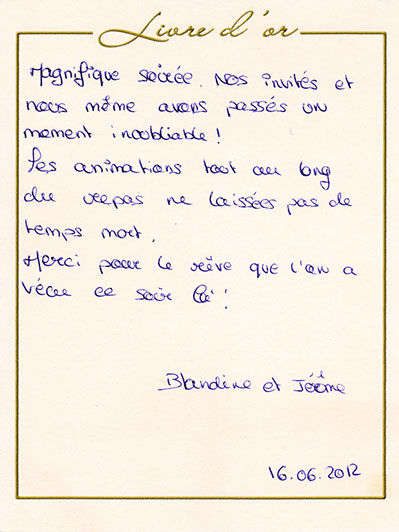 Livre d'or
Magnifique soirée. Nos invités et
nous même avons passés un
moment inoubliable !
Les animations tout au long
du repas ne laissées pas de
temps mort.
Merci pour le rêve que l'on a
vécu ce soir là !
Blandine et Jérôme
16.06.2012